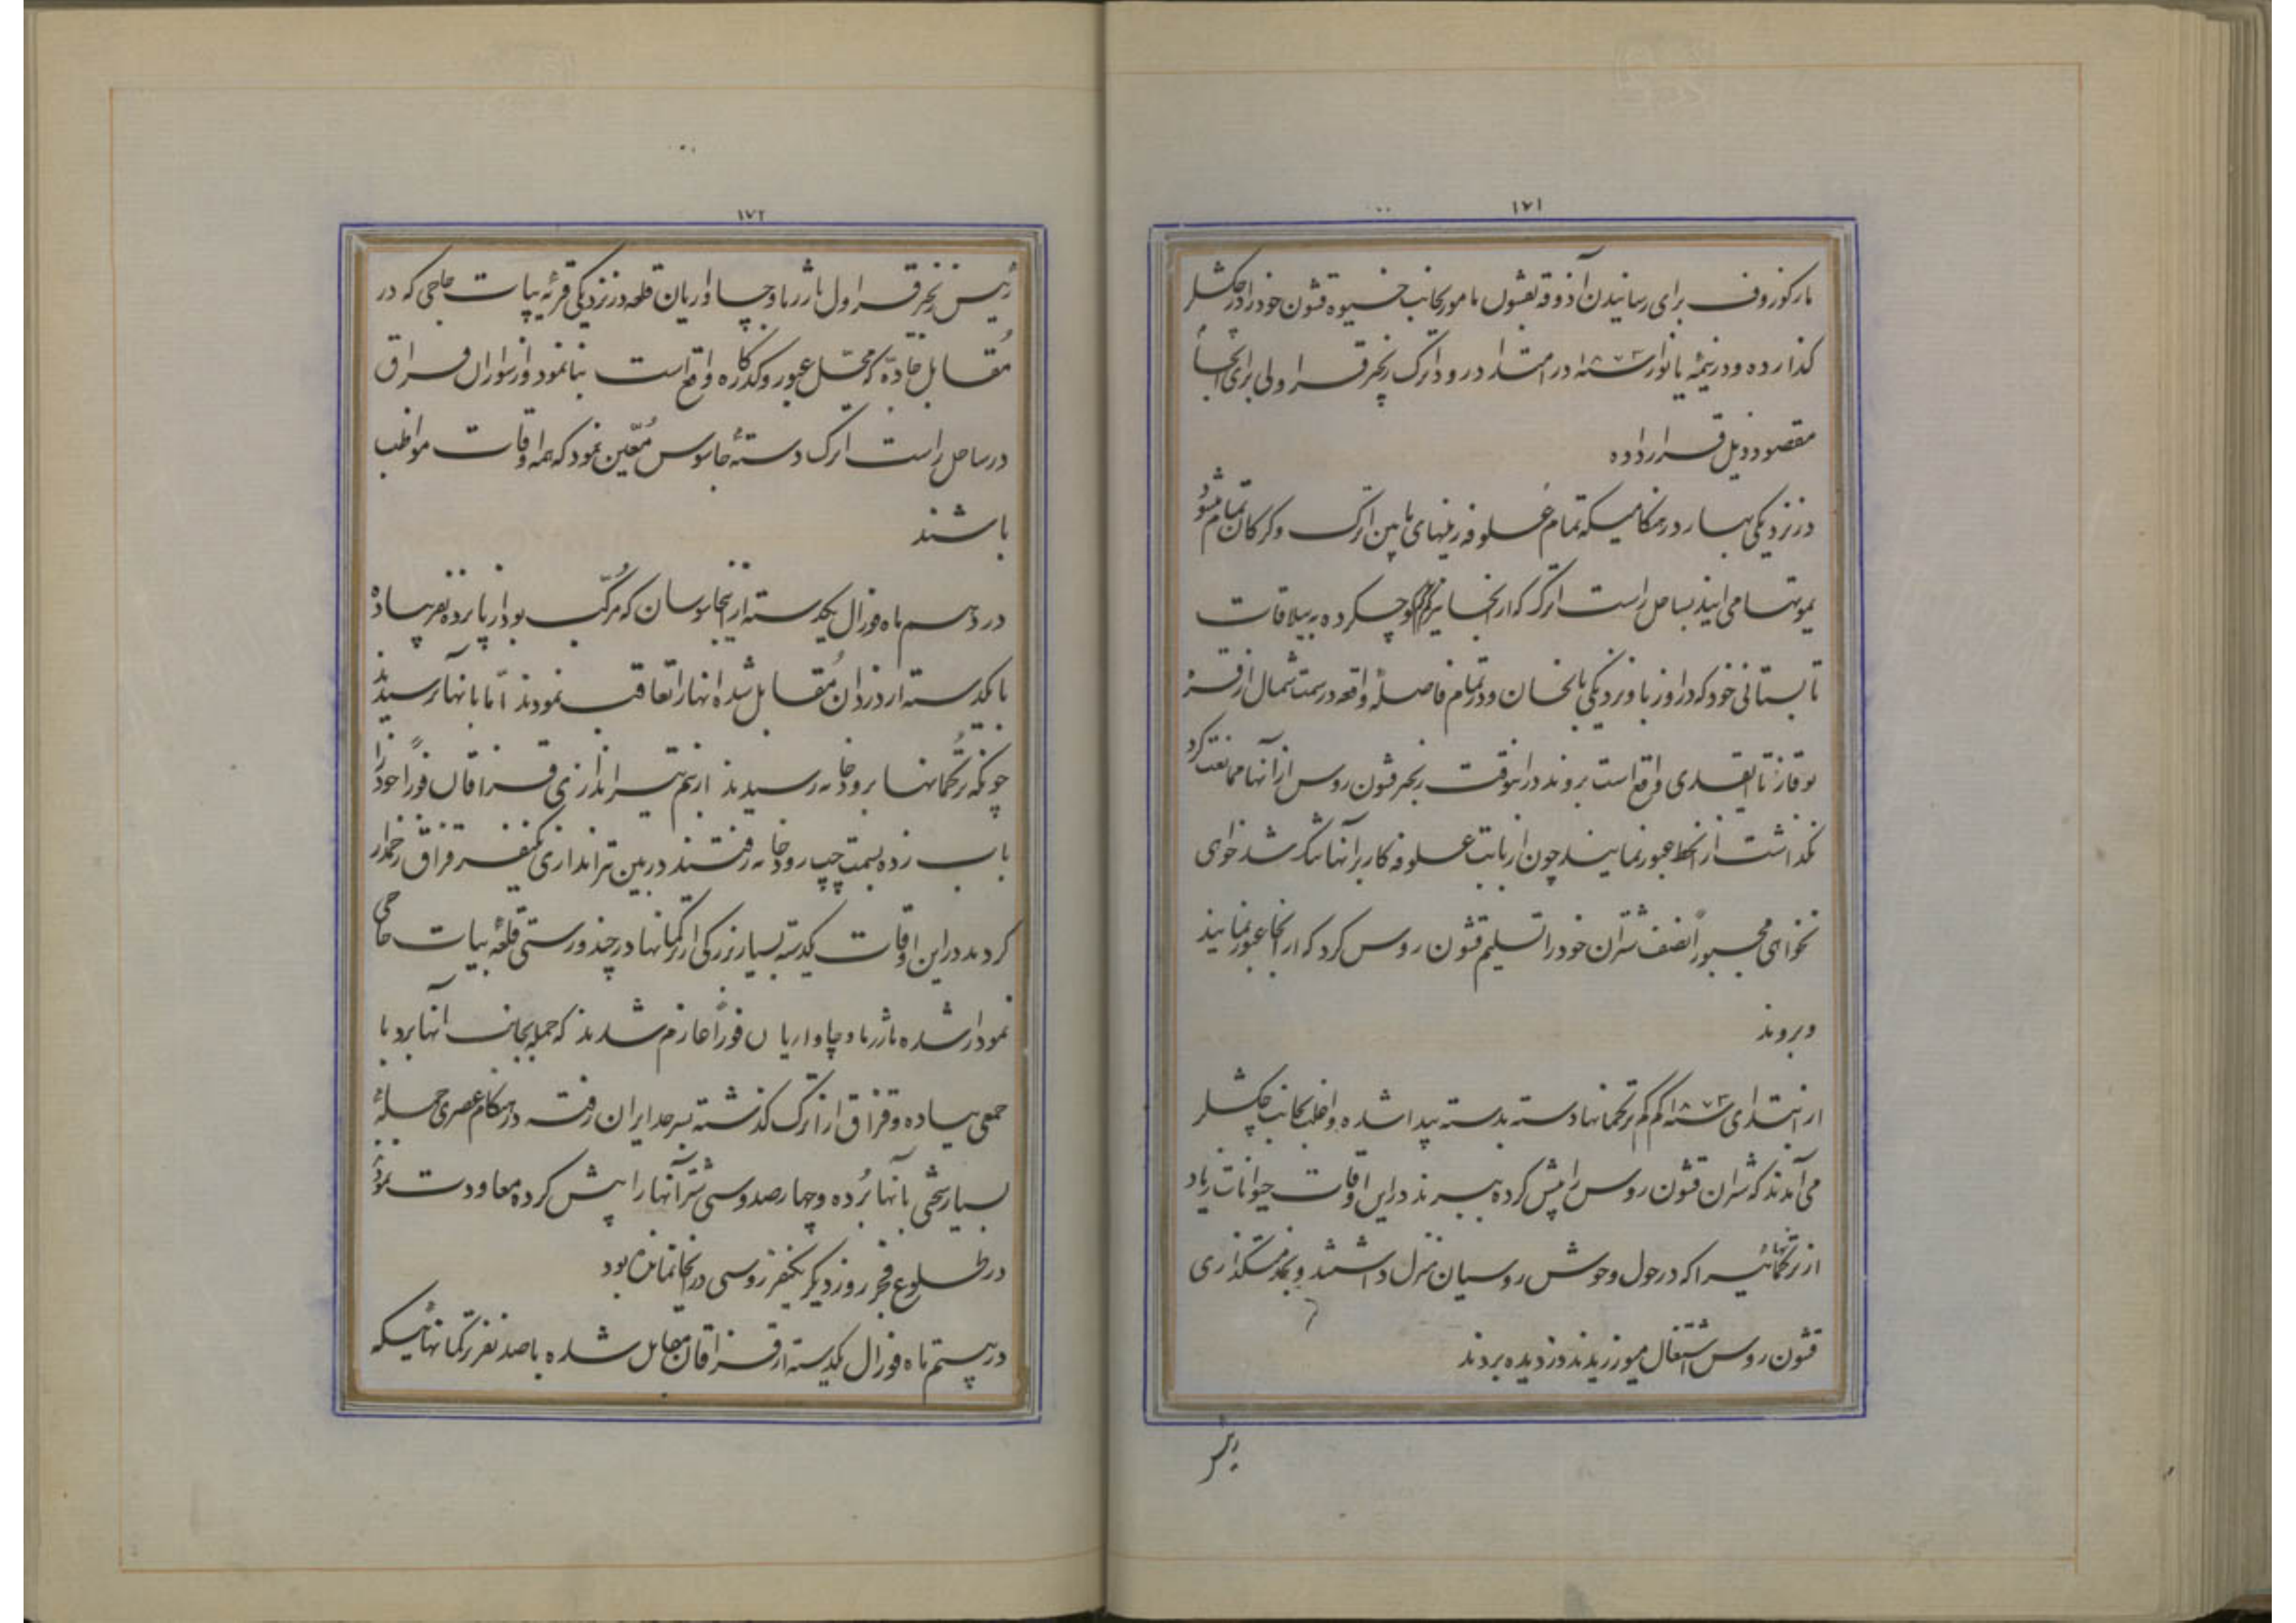 ۱۷۱
مارکوزوف برای رسانیدن آذوقه بقشون مامور بجانب خیوه قشون خود را در چکشلر
گذارده و در نیمهٔ یانوار سنه ۱۸۷۳ در امتداد رود اترک زنجیر قراولی برای انجا
مقصود ذیل قرار داده
در نزدیکی بهار در هنگامیکه تمام علوفه زمینهای مابین اترک و کرکان تمام میشود
یموتها می‌آیند بساحل راست اترک که از انجا کوچ کرده به ییلاقات
تابستانی خود که در اوزبا و نزدیکی بالخان و در تمام فاصلهٔ واقعه در سمت شمال از قز
بوقاز تا واقع است بروند در اینوقت زنجیر قشون روس از آنها ممانعت کرد
نگذاشت از آنخط عبور نمایند چون از بابت علوفه کار بر آنها تنگ شد خواهی
نخواهی مجبوراً نصف شتران خود را تسلیم قشون روس کرد که از انجا عبور نمایند
و بروند
از ابتدای سنه ۱۸۷۳ کم کم ترکمانها دسته بدسته پیدا شده و اغلب بجانب چکشلر
می‌آمدند که شتران قشون روس را پیش کرده ببرند در این اوقات حیوانات زیاد
از ترکمانهائیرا که در حول و حوش روسیان منزل داشتند و بخدمتگذاری
قشون روس اشتغال میورزیدند دزدیده بردند
۱۷۲
رئیس زنجیر قراول ماژر ماوچاواریان قلعه در نزدیکی قریهٔ بیات حاجی که در
مقابل جاده که محل عبور و کدکاره واقع است بنا نمود و از سواران قزاق
در ساحل راست اترک دستهٔ جاسوس معین نمود که همه اوقات مواظب
باشند
در دهم ماه فورال یکدسته از این جاسوسان که مرکب بود از پانزده نفر پیاده
با یکدسته از دزدان مقابل شده انها را تعاقب نمودند امّا بانها نرسیدند
چونکه ترکمانها برودخانه رسیدند از بیم تیراندازی قزاقان فوراً خود را
باب زده بسمت چپ رودخانه رفتند در بین تیراندازی یکنفر قزاق زخمدار
کردند در این اوقات یکدسته بسیار بزرکی از ترکمانها در چند ورستی قلعهٔ بیات حاجی
نمودار شده ماژر ماوچاواریان فوراً عازم شدند که حمله بجانب انها برد با
جمعی پیاده و قزاق از اترک گذشته بسرحد ایران رفته در هنگام عصری حملهٔ
بسیار سختی بآنها برده و چهارصد و سی شتر آنها را پیش کرده معاودت نمود
در طلوع فجر روز دیگر یکنفر روسی در انجا نمانده بود
در بیستم ماه فورال یکدسته از قزاقان مقابل شده با صد نفر ترکمانهائیکه